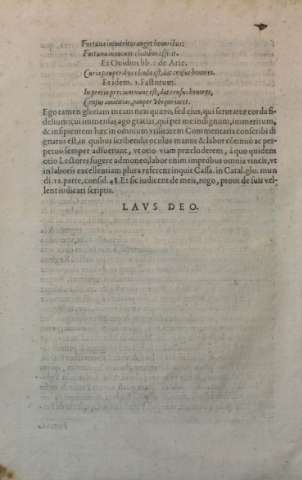 Fortuna
Fortuna innocens
Et Ouidius lib. 2. de Arte.
Curia pauperibus clausa est, dat census honores.
Et idem. 1. Fastorum.
In precio precium nunc est, dat census honores,
Census amicitias, pauper vbique iacet.
Ego tamen gloriam meam non quæro, sed eius, qui scrutatur corda fi-
delium; cui immensas ago gratias, qui per me indignum, immeritum,
& insipientem hæc in omnium vtilitatem Commentaria conscribi di-
gnatus est, in quibus scribendis oculus manus & labor continuò ac per-
petuò semper adfuerunt, vt otio viam præcluderem, à quo quidem
otio Lectores fugere admoneo, labor enim improbus omnia vincit, vt
in laboris excellentiam plura referens inquit Cassa. in Catal. glo. mun
di. 11. parte, consid. 48. Et sic iudicent de meis, rogo, prout de suis vel-
lent iudicari scriptis.
LAVS DEO.